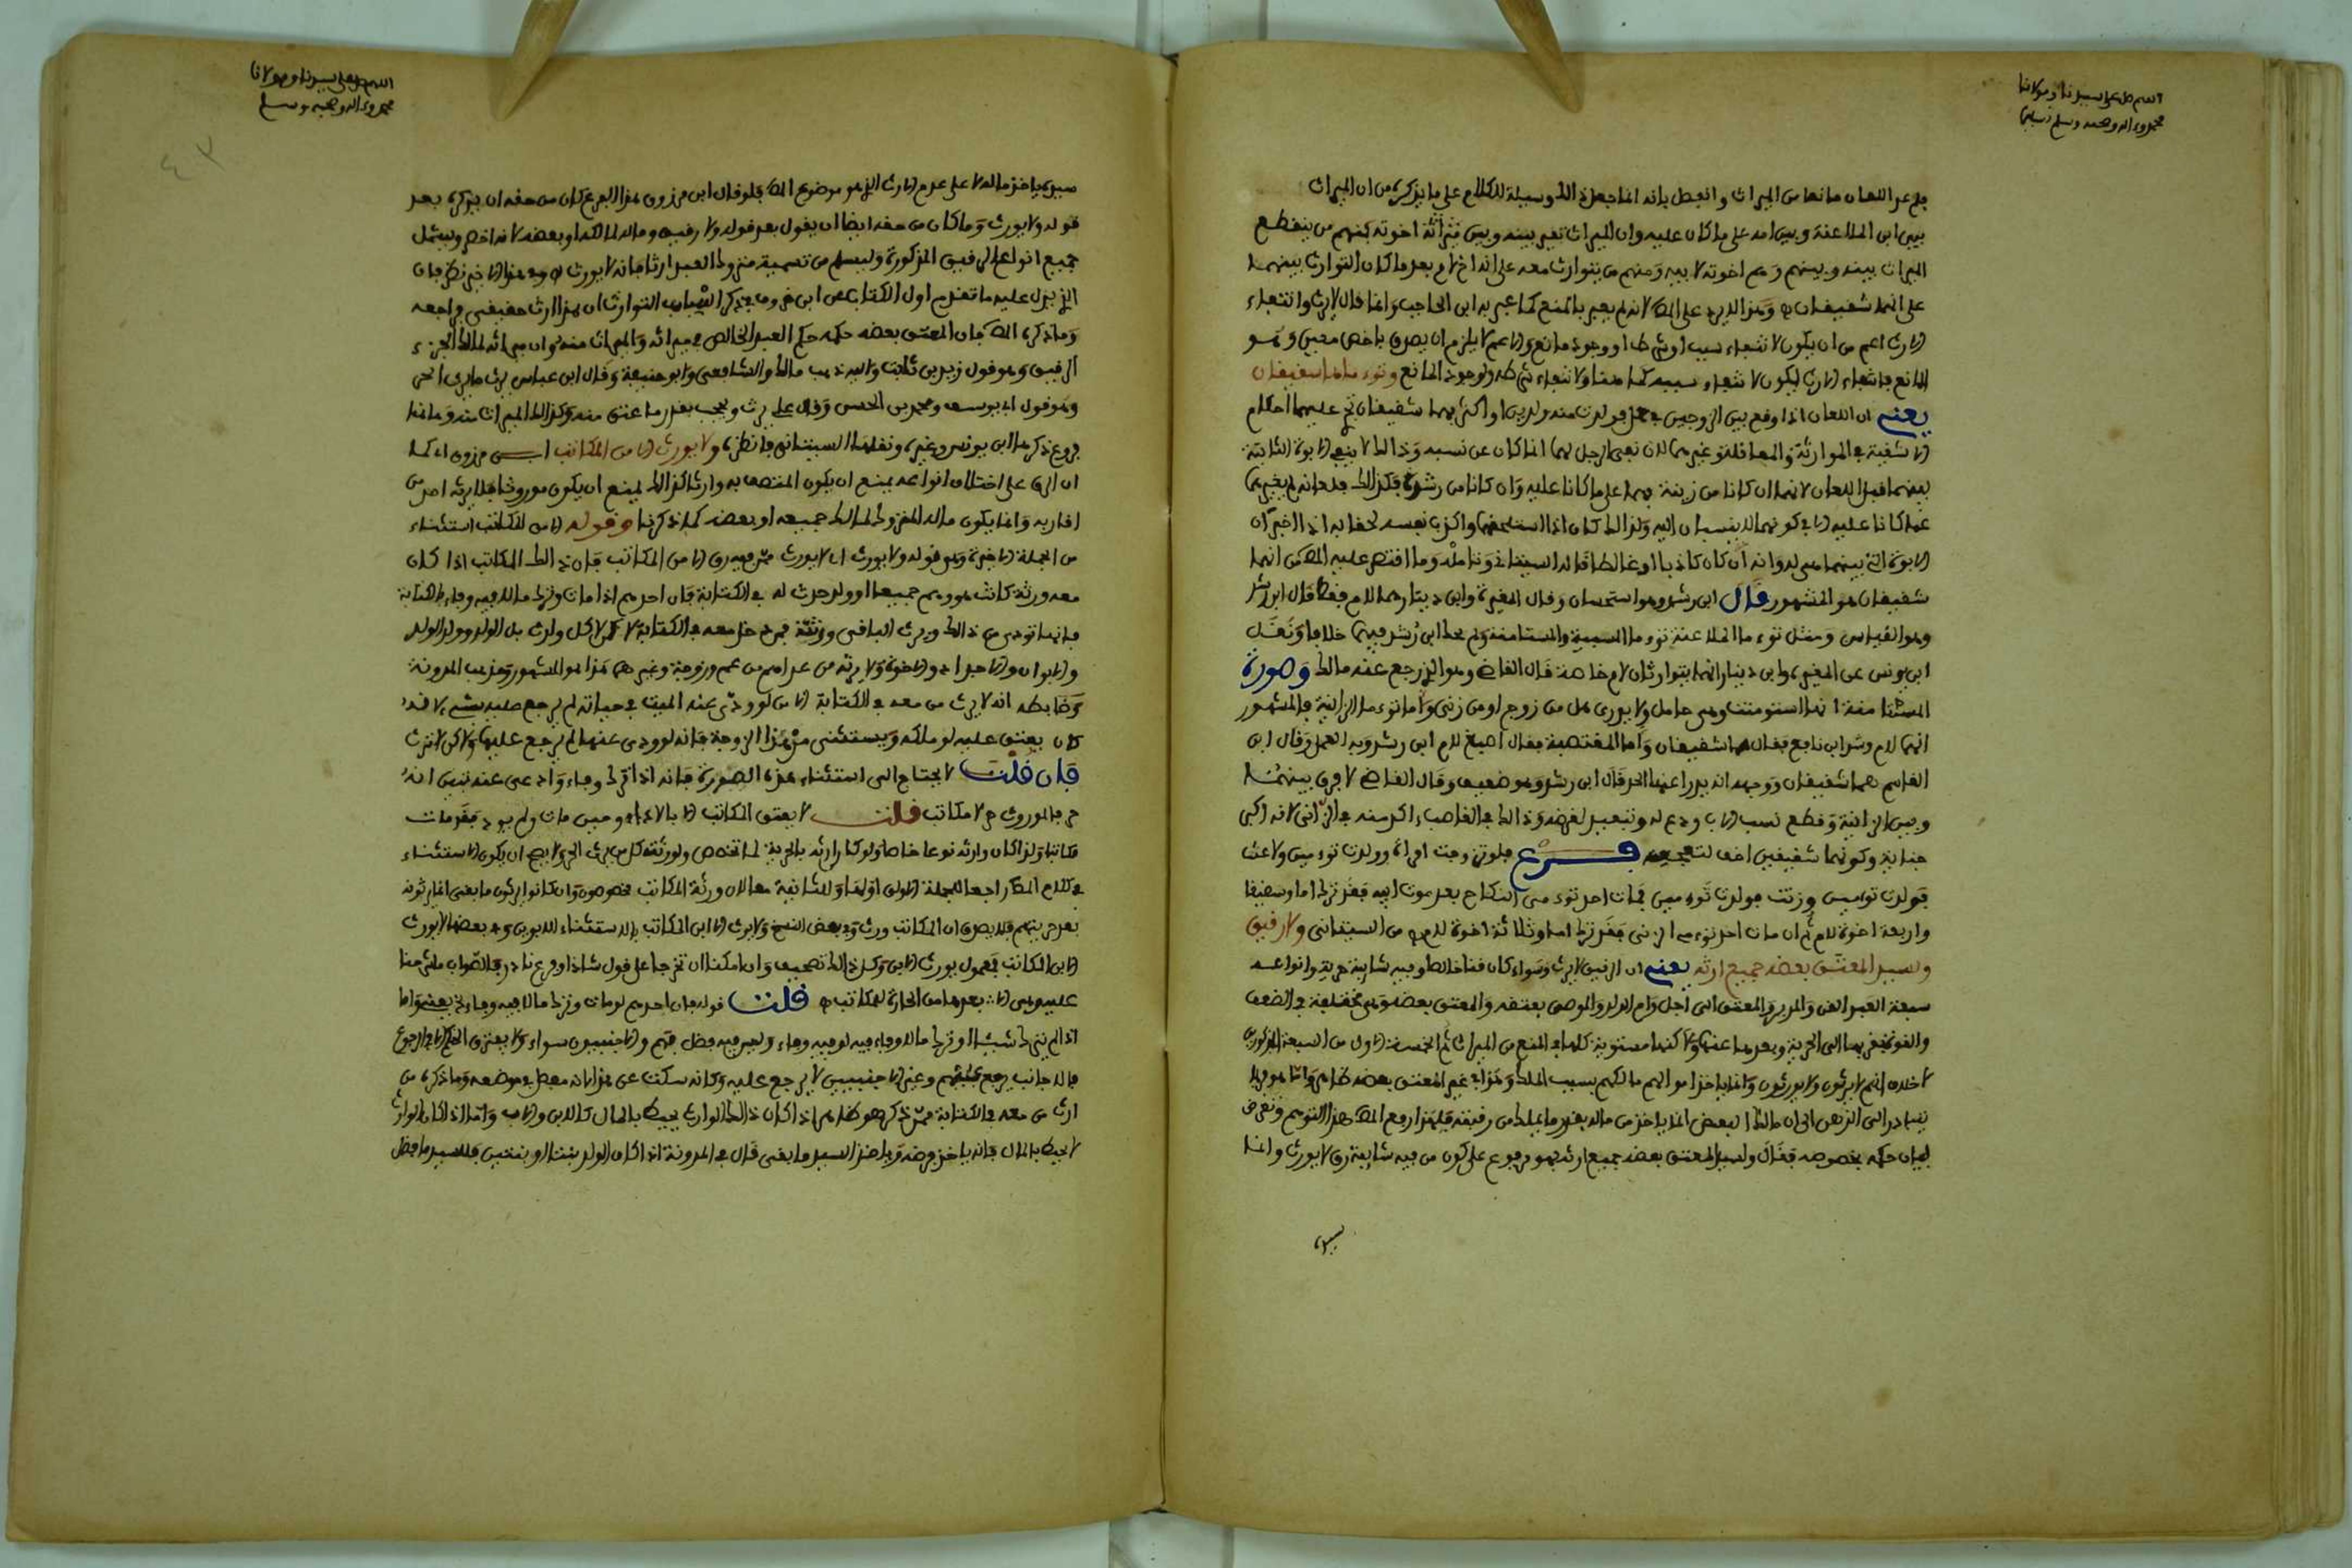 اللهم صل على سيدنا ومولانا
محمد وءاله وصحبه وسلم تسليما
بلم يعد اللعان مانعا من الميراث وانفصل بانه انما جعل ذالك وسيلة للكلام على ما يذكره من ان الميراث
بين ابن الملاعنة وبين امه على ما كان عليه وان الميراث تغير بينه وبين ثلاثة اخوته فمنهم من ينقطع
الميراث بينه وبينهم وهم اخوته لابيه ومنهم من يتوارث معه على انه اخ لام بعد ما كان التوارث بينهما
على انهما شقيقان وهذا لا يرد على المص لانه لم يعبر بالمنع كما عبر به ابن الحاجب وانما قال لا يرث وانتفاء
الارث اعم من ان يكون لانتفاء سبب او شرط او وجود مانع والاعم لا يلزم ان يصدق باخص معين وهو
المانع فانتفاء الارث ليكون لانتفاء سببه كما هنا ولانتفاء شرطه ولوجود المانع وتوءماها شقيقان
يعني ان اللعان اذا وقع بين الزوجين في حمل فولدت منه ولدين او اكثر فهما شقيقان تجري عليهما احكام
الاشقية في الموارثة والمعاقلة وغيرهما لان نفي الرجل لهما انما كان عن نسبه وذالك لا ينفي الابوة الثابتة
بينهما قبل اللعان لانهما ان كانا من زنية فهما على ما كانا عليه وان كانا من رشدة فكذالك
عما كانا عليه الا في كونهما لا ينسبان اليه ولذالك كان اذا استلحقهما واكذب نفسه لحقا به اذ الاخبر ان
الابوة التي بينهما هي له وانه ان كان كاذبا او غالطا قاله السيتاني وتامله وما اقتصر عليه المص من انهما
شقيقان هو المشهور قال ابن رشد وهو استحسان وقال المغيرة وابن دينار هما لام فقط قال ابن رشد
وهو القياس ومثل توءما الملاعنة توءما المسبية والمستامنة ولم يحك ابن رشد فيهما خلافا ونقل
ابن يونس عن المغيرة وابن دينار انهما يتوارثان لام خاصة قال القاضي وهو الذي رجع عنه مالك وصورة
المستامنة انها استومنت وهي حامل ولا يدرى هل من زوج او من زنى واما توءما الزانية فالمشهور
انهما لام وشذ ابن نافع فقال هما شقيقان واما المغتصبة فقال اصبغ لام ابن رشد وبه العمل وقال ابن
القاسم هما شقيقان ووجهه انه يدرا عنها الحد قال ابن رشد وهو ضعيف وقال القاضي لا فرق بينهما
وبين الزانية وقطع نسب الاب ودع له وتبعيد لغرضه وذالك في الغاصب اكد منه في الزاني لانه اكبر
جناية وكونهما شقيقين اخف لتبعيده فرع فلو تزوجت امراة وولدت توءمين ولاعنت
فولدت توءمين وزنت فولدت توءمين فمات احد توءمي النكاح بعد موت ابيه فقد ترك اما وشقيقا
واربعة اخوة للام ثم ان مات احد توءمي الزنى فقد ترك اما وثلاثة اخوة للام من السيتاني ولا رقيق
ولسيد المعتق بعضه جميع ارثه يعني ان الرقيق لا يرث وسواء كان قنا خالصا او فيه شايبة حرية وانواعه
سبعة العبد القن والمدبر والمعتق الى اجل وام الولد والموصى بعتقه والمعتق بعضه وهي مختلفة في الضعف
والقوة بقربها الى الحرية وبعدها عنها ولاكنها مستوية كلها في المنع من الميراث ثم الخمسة الاول من السبعة المذكورين
لا خلاف انهم لا يرثون ولا يورثون وانما ياخذ اموالهم مالكهم بسبب الملك وهذا في غير المعتق بعضه ظاهر واما هو فربما
يتبادر الى الذهن ان مالك البعض انما ياخذ من ماله بقدر ما يملك من رقبته فلهذا رفع المص هذا التوهم وتعرض
لبيان حكمه بخصوصه فقال ولسيد المعتق بعضه جميع ارثه فهو مرفوع على كون من فيه شايبة رق لا يورث وانما
سيده
اللهم صل على سيدنا ومولانا
محمد وءاله وصحبه وسلم
سيده ياخذ ماله لا على عدم الارث الذي هو موضوع المص فلو قال ابن مرزوق هذا الفرع كان من حقه ان يذكره بعد
قوله ولا يورث وما كان من حقه ايضا ان يقول بعد قوله ولا رقيق وماله لمالكه او بعضه لانه اخص ويشمل
جميع انواع الرقيق المذكورة وليسلم من تسمية متروك العبد ارثا فانه لا يورث وفي هذا الاخير نظر فان
الذي يدل عليه ما تقدم اول الكتاب عن ابن خروف في ذكر اسباب التوارث ان هذا ارث حقيقي فراجعه
وما ذكره المص من ان المعتق بعضه حكمه حكم العبد الخالص في ميراثه والميراث منه وان ميراثه لمالك الجزء
الرقيق وهو قول زيد بن ثابت واليه ذهب مالك والشافعي وابو حنيفة وقال ابن عباس يرث ما يرث الحر
وهو قول ابي يوسف ومحمد بن الحسن وقال علي يرث ويحجب بقدر ما عتق منه وكذالك الميراث منه وهاهنا
فروع ذكرها ابن يونس وغيره ونقلها السيتاني فانظره ولا يورث الا من المكاتب ابن مرزوق اي كما
ان الرق على اختلاف انواعه يمنع ان يكون المتصف به وارثا كذالك يمنع ان يكون موروثا فلا يرثه احد من
اقاربه وانما يكون ماله المتروك لمالك جميعه او بعضه كما ذكرنا وقوله الا من المكاتب استثناء
من الجملة الاخيرة وهو قوله ولا يورث اي لا يورث من فيه رق الا من المكاتب فان ذالك المكاتب اذا كان
معه ورثة كاتب هو وهم جميعا او ولد حدث له في الكتابة فان احدهم اذا مات وترك مالا فيه وفاء بالكتابة
فانها تودى من ذالك ويرث الباقي ورثته ممن دخل معه في الكتابة لا كل وارث بل الولد وولد الولد
والابوان والاجداد والاخوة ولا يرثه من عداهم من عم وزوجة وغيرهما هذا هو المشهور ومذهب المدونة
وضابطه انه لا يرث من معه في الكتابة الا من لو ودى عنه الميت في حياته لم يرجع عليه بشيء لانه
كان يعتق عليه لو ملكه ويستثنى من هذا الزوجة فانه لو ودى عنها لم يرجع عليها ولاكن لا ترث
فان قلت لا يحتاج الى استثناء هذه الصورة فانه اذا ترك وفاء وادي عنه تبين انه
حر فالموروث حر لا مكاتب قلت لا يعتق المكاتب الا بالاداء وحين مات ولم يود فقد مات
مكاتبا ولذا كان وارثه نوعا خاصا ولو كان ارثه بالحرية لما اختص ولورثه كل من يرث الحر ولا يصح ان يكون الاستثناء
في كلام المص راجعا للجملة الاولى اولها وللثانية معا لان ورثة المكاتب مخصوصون وان كانوا يرثون ما بقي انما يرثونه
بعد حريتهم فلا يصدق ان المكاتب ورث وفي بعض النسخ ولا يرث الا ابن المكاتب باستثناء الابن وفي بعضها لا يورث
الا ابن المكاتب فيمول يورث الابن وكل ذالك تصحيف وان امكن ان تخرجا على قول شاذ او فرع نادر والصواب ما شرحنا
عليه وهي الا بعدها من الجارة للمكاتب قلت قوله فان احدهم لو مات وترك مالا فيه وفاء يعني واما
اذا لم يترك شيئا او ترك مالا وفاء فيه او فيه وفاء وليس فيه فضل فهم والاجنبيون سواء ولا يفترق الحكم الا في الرجوع
فالاجانب يرجع عليهم وغير الاجنبيين لا يرجع عليه وكانه سكت عن هذا لانه مفصل في موضعه وما ذكره من
ارث من معه في الكتابة ممن ذكر هو ظاهر اذا كان ذالك الوارث يحيط بالمال كالابن والاب واما اذا كان الوارث
لا يحيط بالمال فانه ياخذ فرضه وياخذ السيد ما بقي قال في المدونة اذا كان الولد بنتا او بنتين فللسيد ما فضل